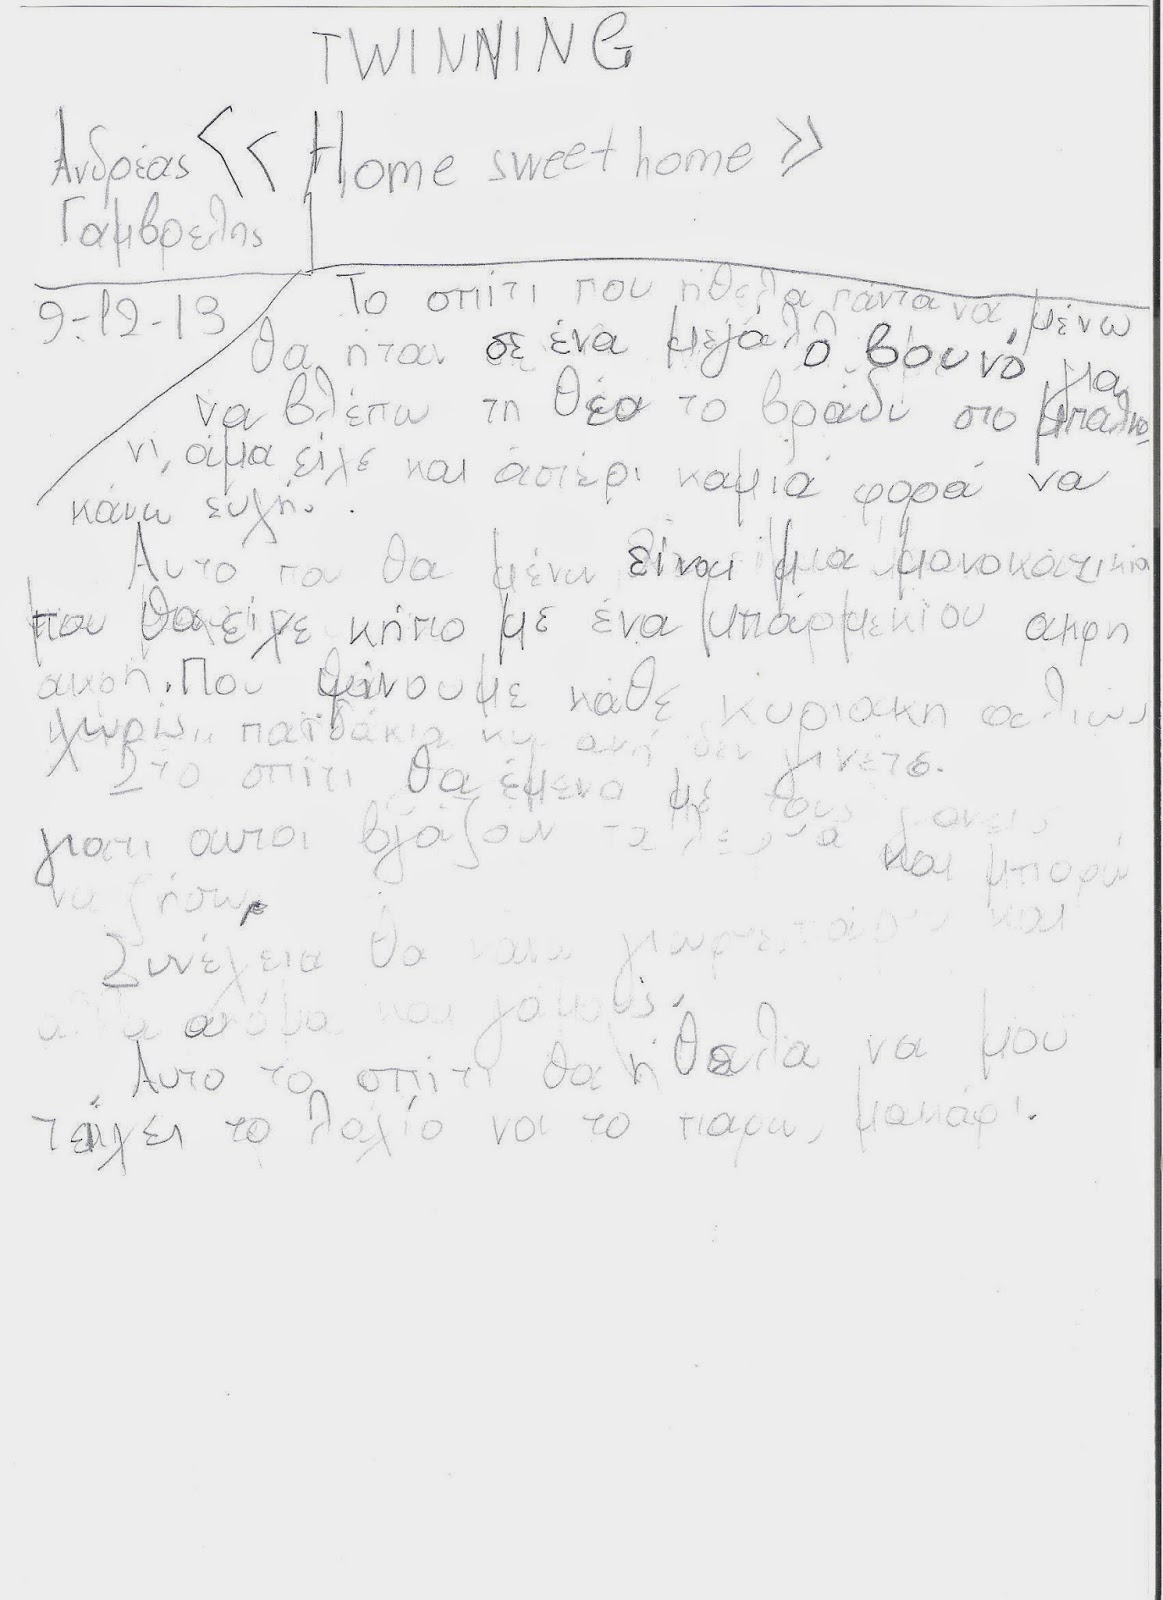 TWINNING
Ανδρέας << Home sweet home >>
Γαμβρελης
9-12-13
Το σπίτι που ήθελα πάντα να μένω
θα ήταν σε ένα μεγάλο βουνό για
να βλέπω τη θέα το βράδυ στο μπαλκό
νι, άμα είχε και αστέρι καμιά φορά να
κάνω ευχή.
Αυτο που θα μένω είναι μια μονοκατικία
που θα είχε κήπο με ένα μπάρμεκιου ακρη
ακρη. Που ψήνουμε κάθε κυριακη
χωρίς παϊδάκια δεν γινέτε.
Στο σπίτι θα έμενα με τους γονείς,
γιατι αυτοι βγάζουν τα λεφτά και μπορώ
να ζήσω
Συνέχεια θα κάνω και
ακόμα και γάμους.
Αυτο το σπίτι θα ήθελα να μου
τείχει το λαχίο να το παρω, μακάρι.